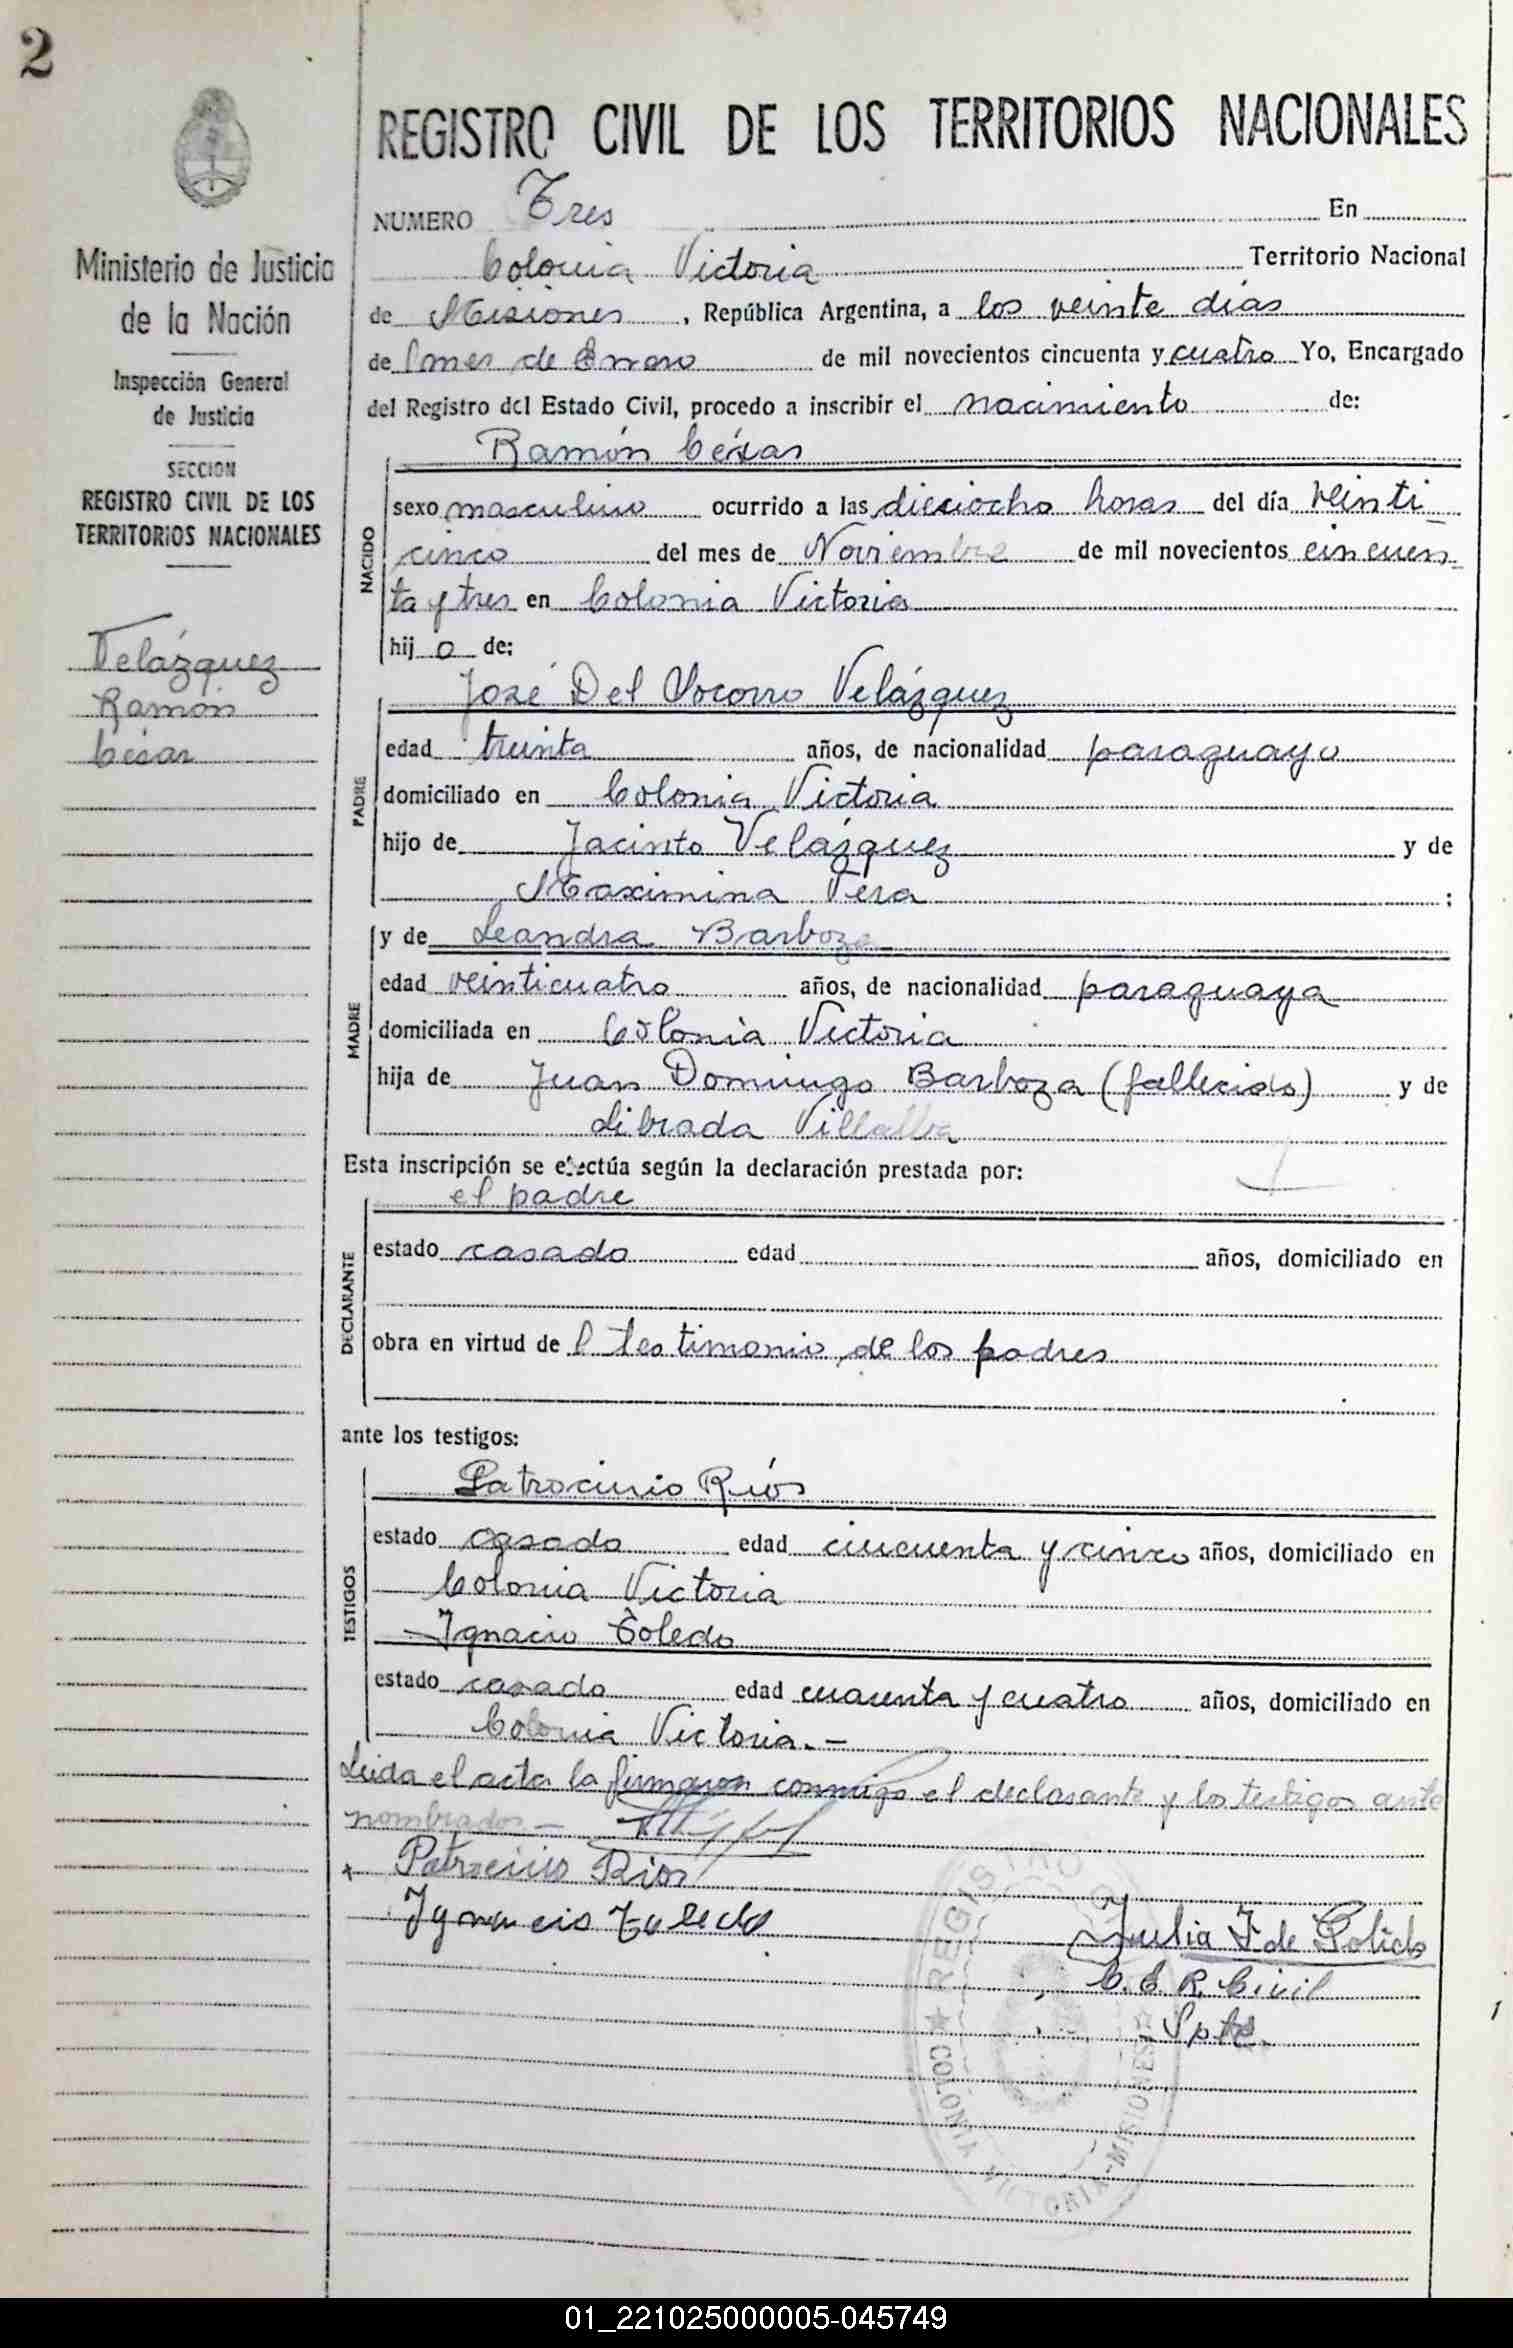 2
REGISTRO CIVIL DE LOS TERRITORIOS NACIONALES
Ministerio de Justicia
de la Nación
Inspección General
de Justicia
SECCION
REGISTRO CIVIL DE LOS
TERRITORIOS NACIONALES
Velázquez
Ramón
César
NUMERO Tres En
Colonia Victoria Territorio Nacional
de Misiones, República Argentina, a los veinte días
del mes de Enero de mil novecientos cincuenta y cuatro Yo, Encargado
del Registro del Estado Civil, procedo a inscribir el nacimiento de:
Ramón César
NACIDO
sexo masculino ocurrido a las dieciocho horas del día veinti
cinco del mes de Noviembre de mil novecientos cincuen
ta y tres en Colonia Victoria
hij o de:
José Del Socorro Velázquez
PADRE
edad treinta años, de nacionalidad paraguayo
domiciliado en Colonia Victoria
hijo de Jacinto Velázquez y de
Maximina Vera ;
MADRE
y de Leandra Barboza
edad veinticuatro años, de nacionalidad paraguaya
domiciliada en Colonia Victoria
hija de Juan Domingo Barboza (fallecido) y de
Librada Villalba
Esta inscripción se efectúa según la declaración prestada por:
el padre
DECLARANTE
estado casado edad años, domiciliado en
obra en virtud de l testimonio de los padres
ante los testigos:
TESTIGOS
Patrocinio Ríos
estado casado edad cincuenta y cinco años, domiciliado en
Colonia Victoria
Ignacio Toledo
estado casado edad cuarenta y cuatro años, domiciliado en
Colonia Victoria.-
Leida el acta la firmaron conmigo el declarante y los testigos ante
nombrados -
Patrocinio Rios
Ygnacio Toledo
Julia F. de
C. E. R. Civil
Spte.
REGISTRO
COLONIA VICTORIA-MISIONES
01_221025000005-045749